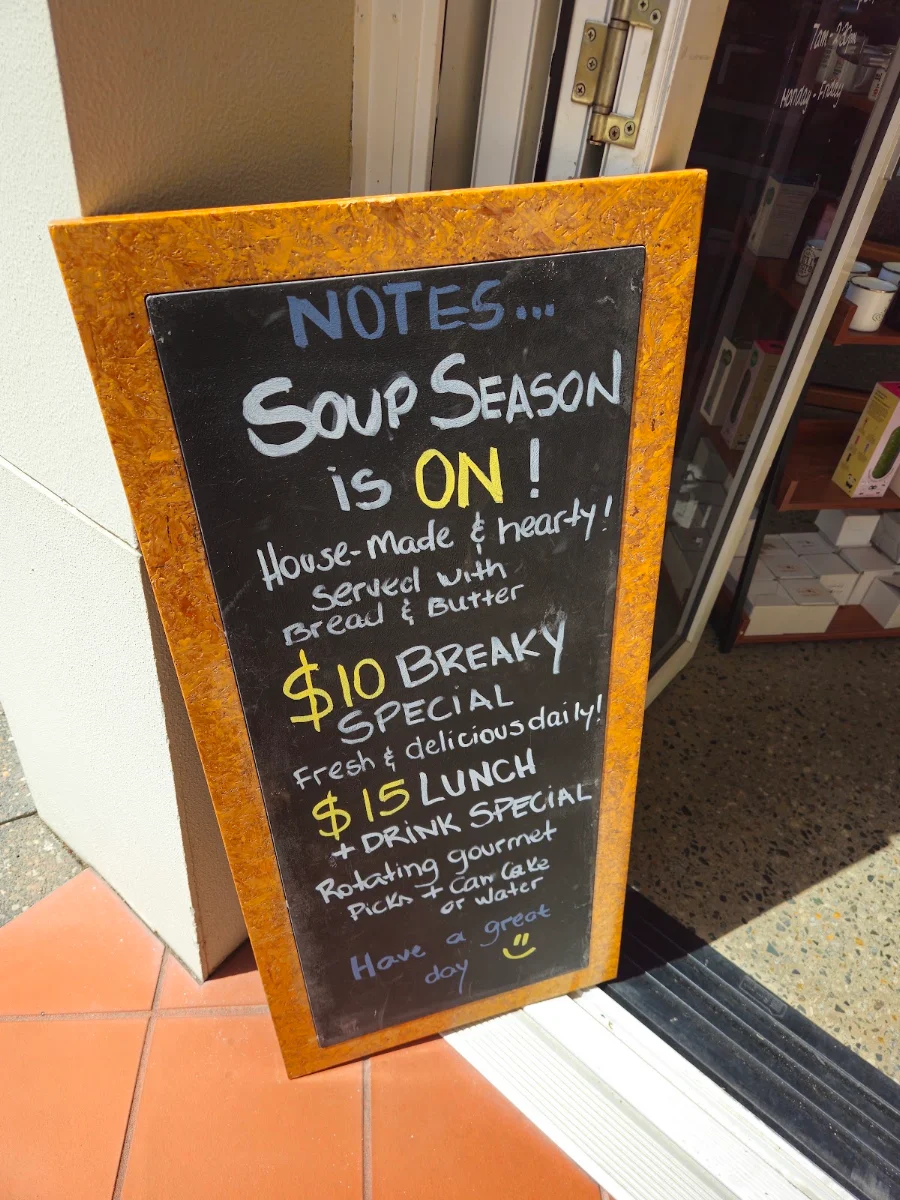 7am
Monday - Friday
NOTES...
SOUP SEASON
is ON !
House-Made & hearty!
served with
Bread & Butter
$10 BREAKY
SPECiAL
Fresh & delicious daily!
$15 LUNCH
+ DRiNK SPECiAL
Rotating gourmet
Picks + Can Coke
or Water
Have a great
day